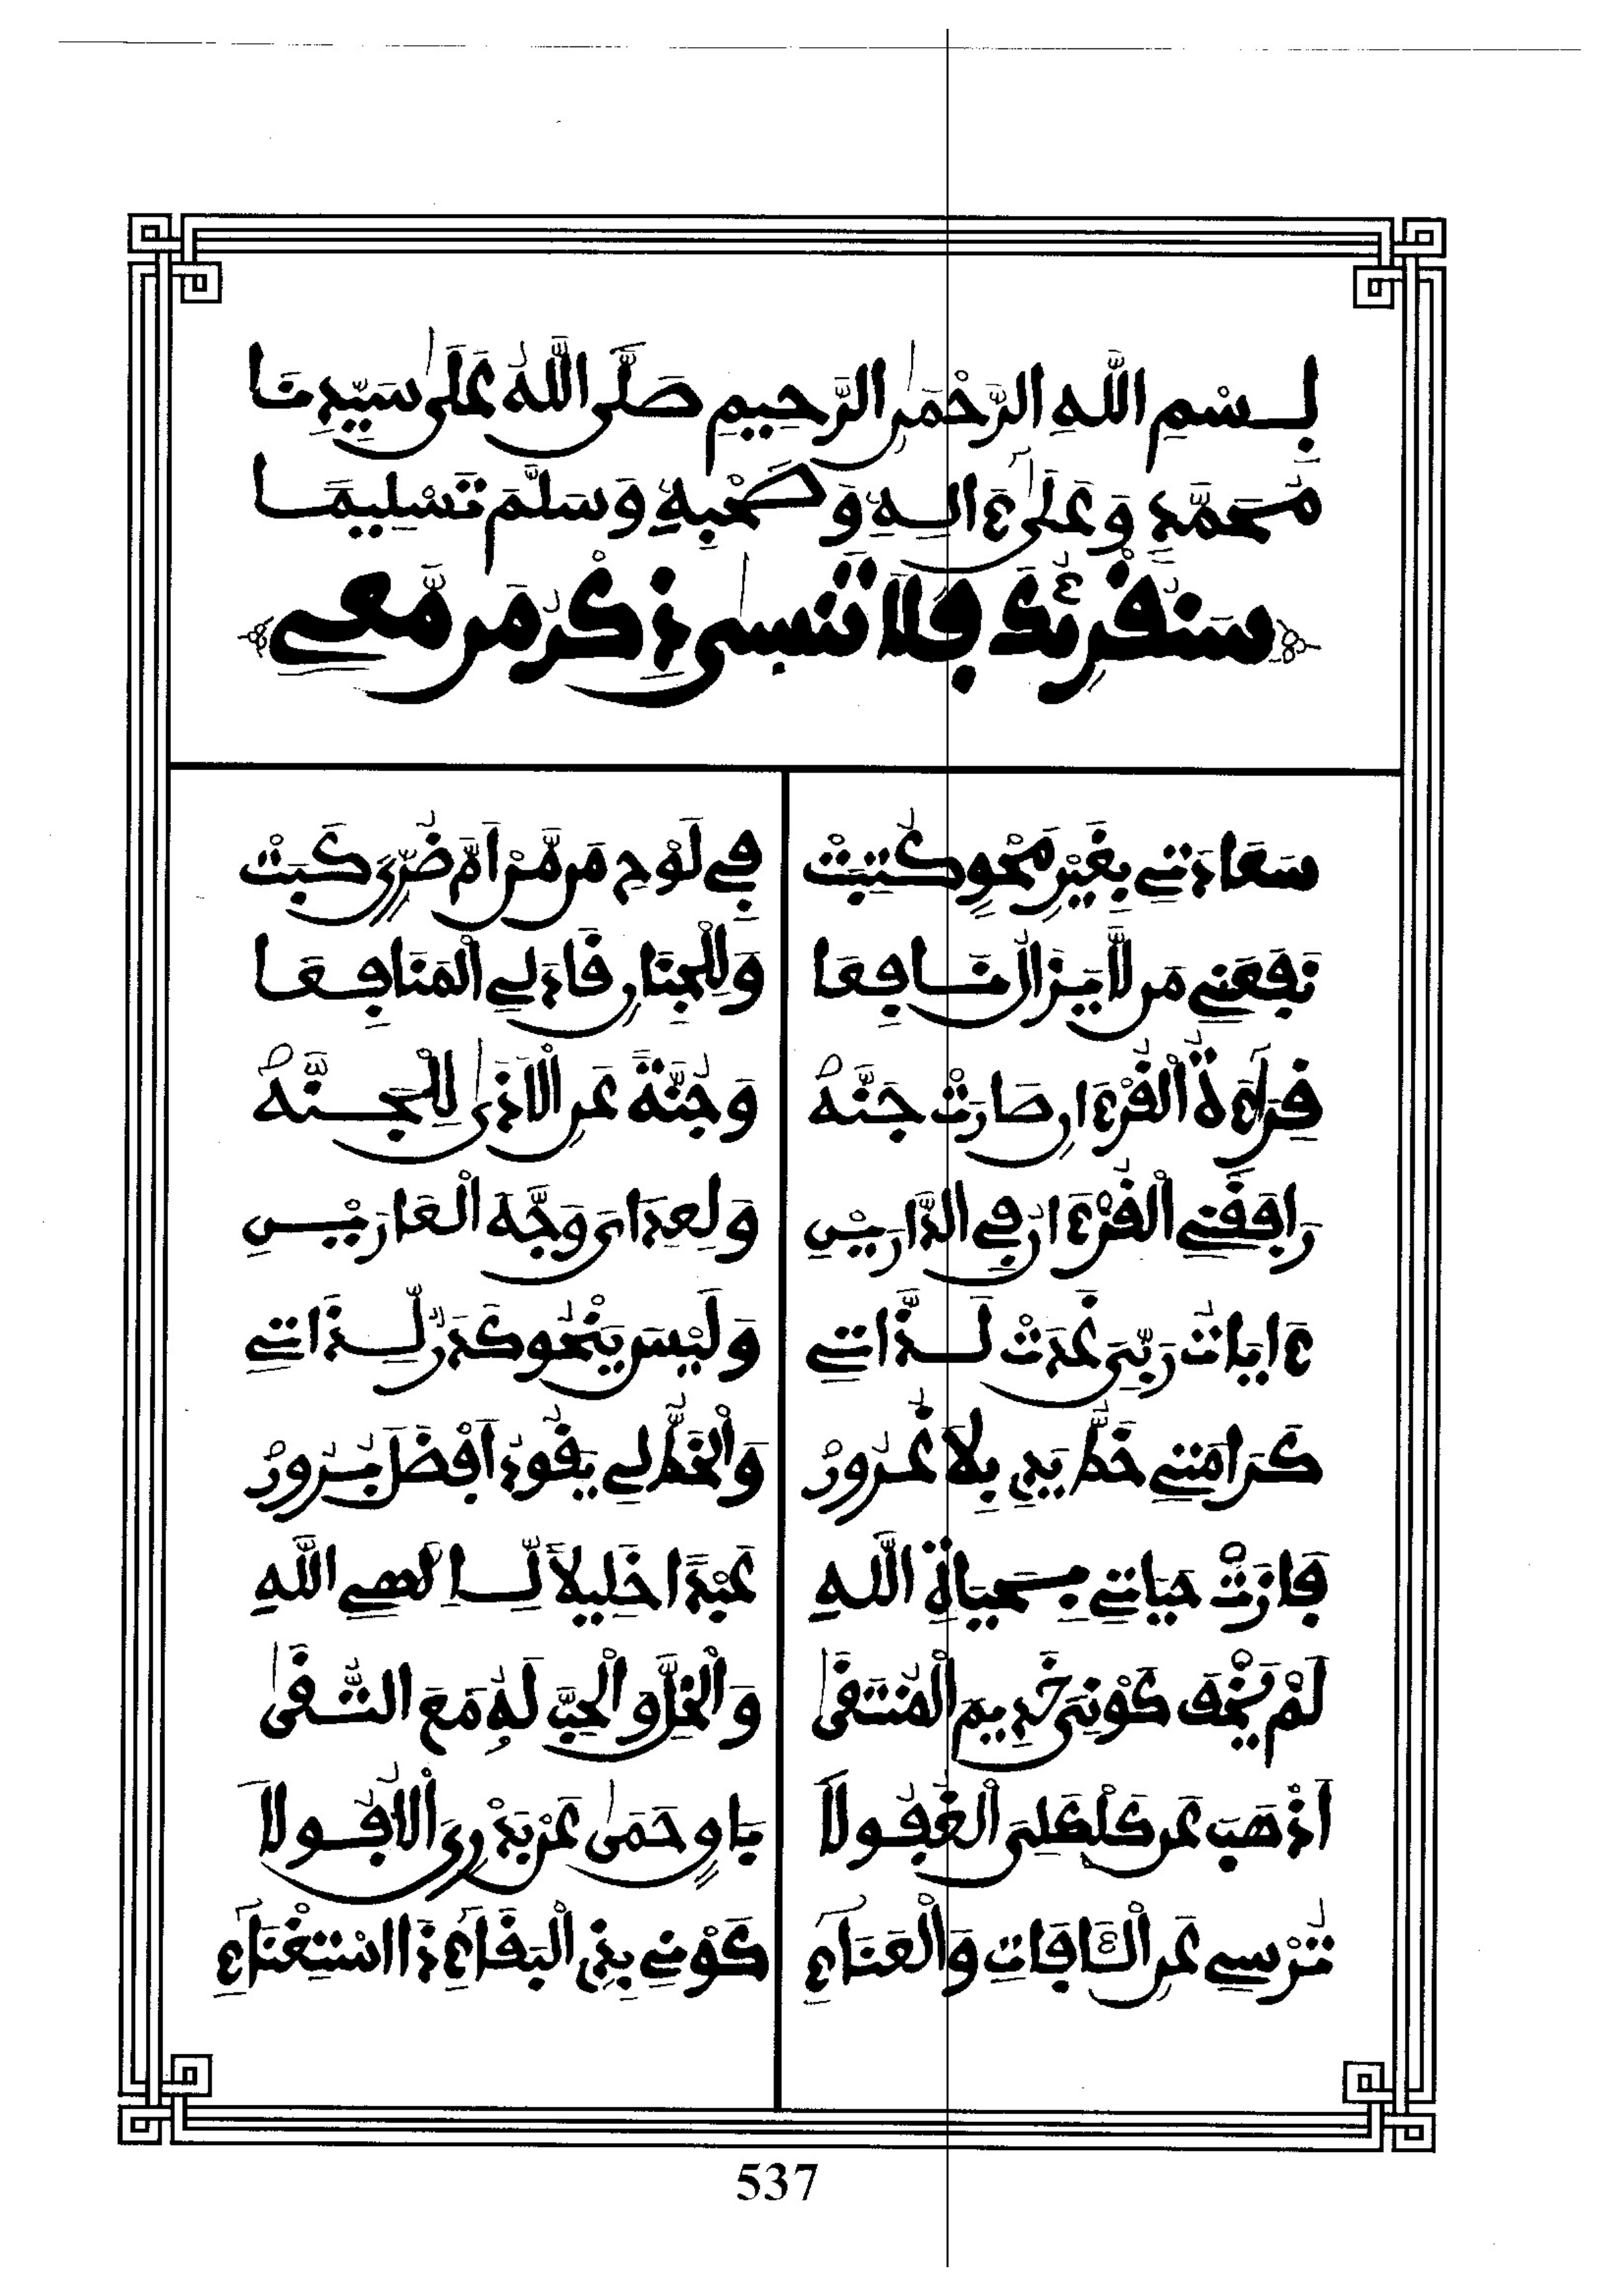 بِسْمِ اللَّهِ الرَّحْمَٰنِ الرَّحِيمِ صَلَّى اللَّهُ عَلَىٰ سَيِّدِنَا
مُحَمَّدٍ وَعَلَىٰ ءَالِهِ وَصَحْبِهِ وَسَلَّمَ تَسْلِيمًا
سَنُقْرِئُكَ فَلَا تَنسَىٰ ذِكْرُ مَن مَّعِي
سَعَادَتِي بِغَيْرِ مَحْوٍ كُتِبَتْ فِي لَوْحِ مَن مَّنْ أَمَّ ضُرِّي كَبَتْ
نَفَعَنِي مَن لَّا يَزَالُ نَافِعَا وَلِلْجِنَانِ قَادَ لِي الْمَنَافِعَا
قِرَاءَةُ الْقُرْءَانِ صَارَتْ جَنَّهْ وَجُنَّةً عَنِ الْأَذَىٰ لِلْجِنَّهْ
رَافَقَنِي الْقُرْءَانُ فِي الدَّارَيْنِ وَلِعِدَايَ وَجَّهَ الْعَارَيْنِ
ءَايَاتُ رَبِّي غَدَتْ لَذَّاتِي وَلَيْسَ يَنْحُو كَدَرٌ لِّذَاتِي
كَرَامَتِي خَطُّ يَدِي بِلَا غُرُورْ وَالْخَطُّ لِي يَقُودُ أَفْضَلَ سُرُورْ
فَازَتْ حَيَاتِي بِحَيَاةِ اللَّهِ عَبْدًا خَلِيلًا لِّإِلَٰهِي اللَّهِ
لَمْ يَخْفَ كَوْنِي خَدِيمَ الْمُنتَقَىٰ وَالْخِلِّ وَالْحِبِّ لَهُ مَعَ التُّقَىٰ
أَذْهَبَ عَن كَلْكَلِي الْغُفُولَا بَاقٍ حَمَىٰ عَنْ بَدْرِيَ الْأُفُولَا
تُرْسِي عَنِ الْآفَاتِ وَالْعَنَاءِ كَوْنِي بِذِي الْبَقَاءِ ذَا اسْتِغْنَاءِ
537